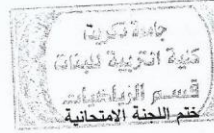 جامعة تكريت
كلية التربية للبنات
قسم الرياضيات
ختم اللجنة الامتحانية